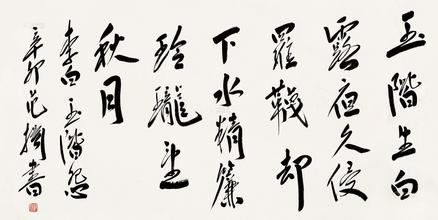 玉階生白
露夜久侵
羅韈却
下水精簾
玲瓏望
秋月
李白玉階怨
辛卯范書